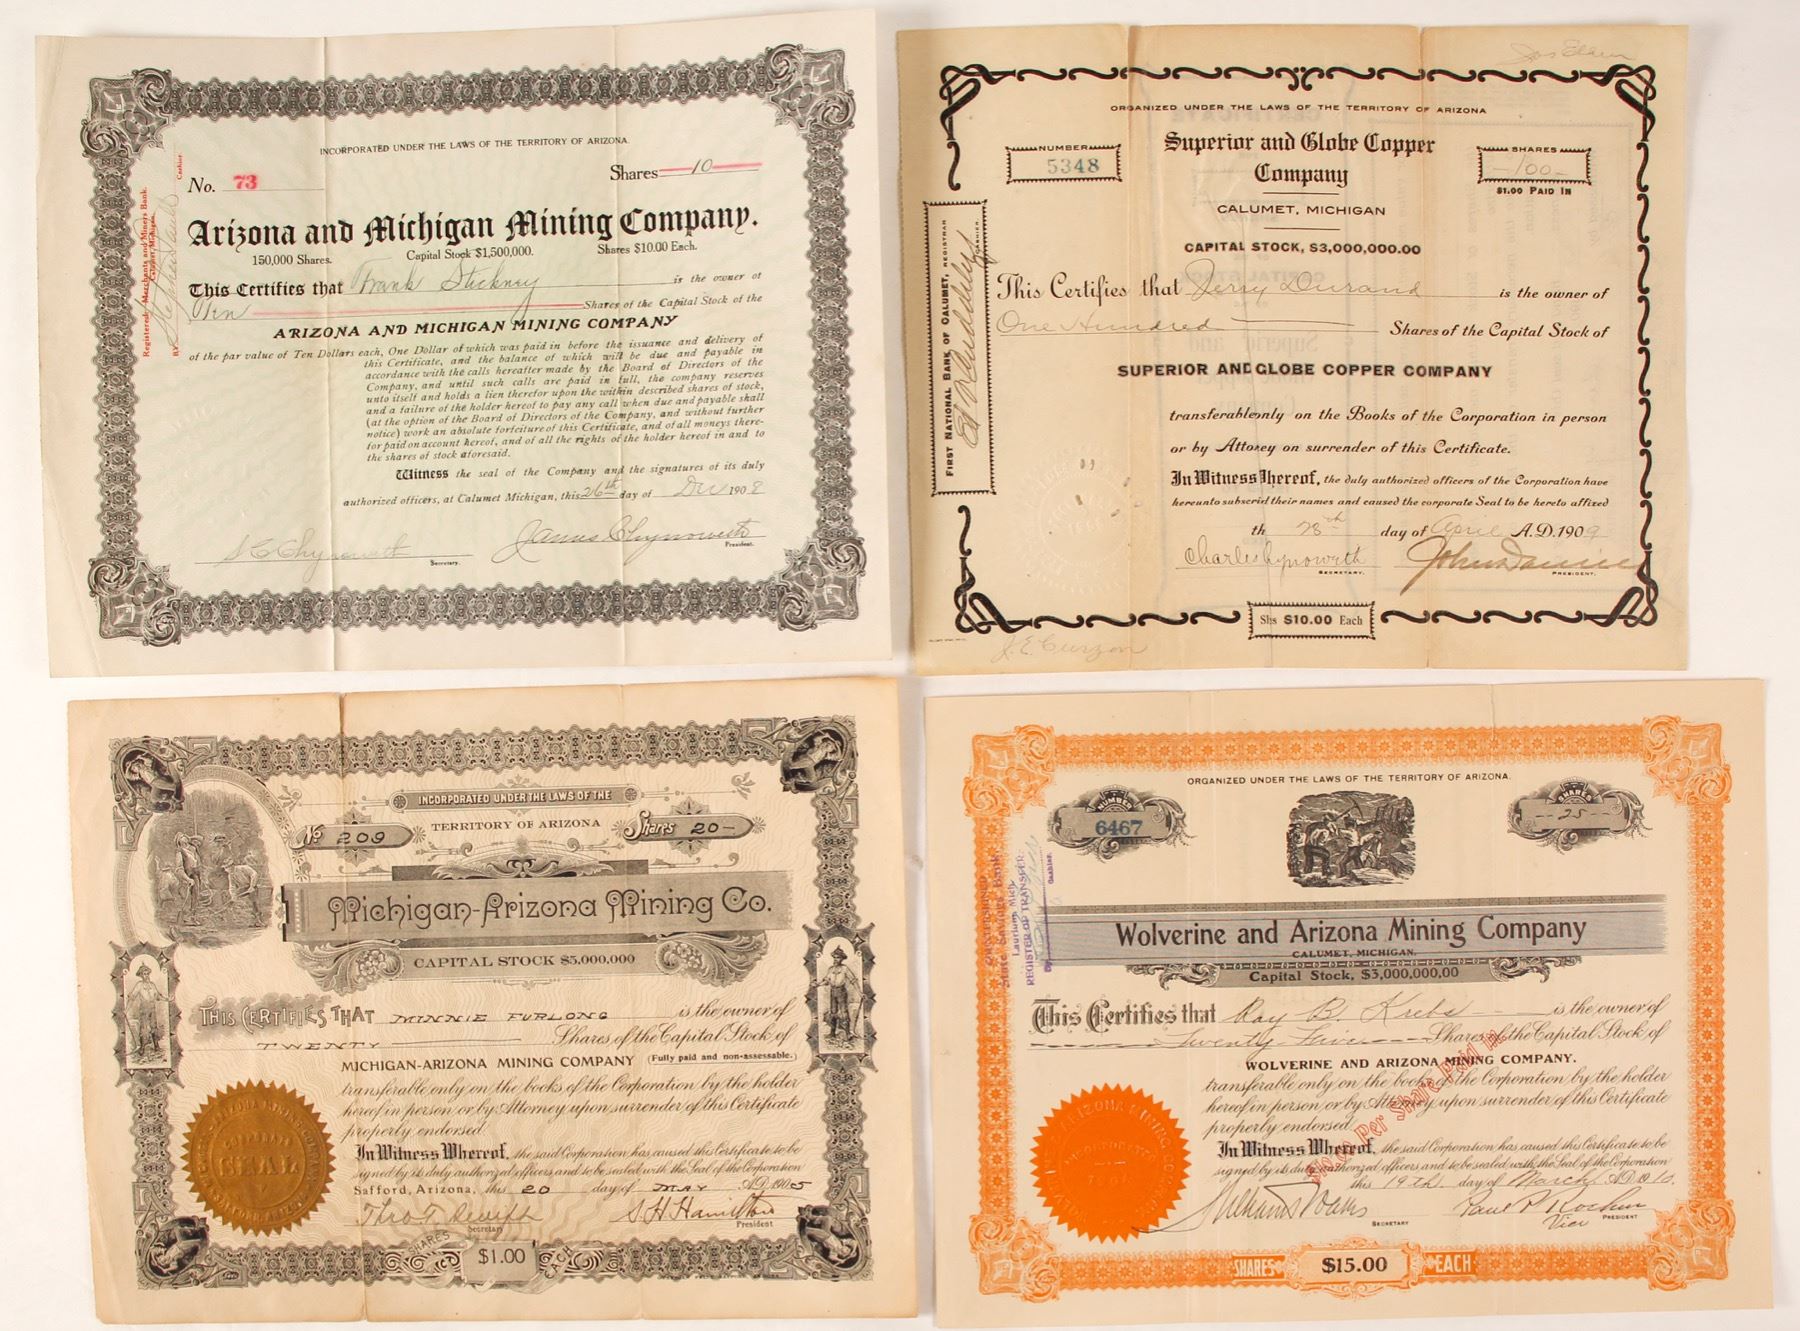 INCORPORATED UNDER THE LAWS OF THE TERRITORY OF ARIZONA.
No. 73
Shares 10
Arizona and Michigan Mining Company.
150,000 Shares. Capital Stock $1,500,000. Shares $10.00 Each.
This Certifies that Frank Stickney is the owner of
Ten Shares of the Capital Stock of the
ARIZONA AND MICHIGAN MINING COMPANY
of the par value of Ten Dollars each, One Dollar of which was paid in before the issuance and delivery of
this Certificate, and the balance of which will be due and payable in
accordance with the calls hereafter made by the Board of Directors of the
Company, and until such calls are paid in full, the company reserves
unto itself and holds a lien therefor upon the within described shares of stock,
and a failure of the holder hereof to pay any call when due and payable shall
(at the option of the Board of Directors of the Company, and without further
notice) work an absolute forfeiture of this Certificate, and of all moneys there-
for paid on account hereof, and of all the rights of the holder hereof in and to
the shares of stock aforesaid.
Witness the seal of the Company and the signatures of its duly
authorized officers, at Calumet Michigan, this 26th day of Dec 1908
James Chynoweth
Secretary. President.
Registered: Merchants and Miners Bank.
Calumet, Michigan.
BY Cashier
Jas Edwin
ORGANIZED UNDER THE LAWS OF THE TERRITORY OF ARIZONA
NUMBER
5348
Superior and Globe Copper
Company
SHARES
100
$1.00 PAID IN
CALUMET, MICHIGAN
CAPITAL STOCK, $3,000,000.00
This Certifies that Jerry Durand is the owner of
One Hundred Shares of the Capital Stock of
SUPERIOR AND GLOBE COPPER COMPANY
transferable only on the Books of the Corporation in person
or by Attorey on surrender of this Certificate.
In Witness Whereof, the duly authorized officers of the Corporation have
hereunto subscrid their names and caused the corporate Seal to be hereto affixed
th 28th day of April A.D. 1909
Charles Chynoweth John Daniell
SECRETARY. PRESIDENT.
Shs $10.00 Each
J. E. Curzon
FIRST NATIONAL BANK OF CALUMET, REGISTRAR
CASHIER
INCORPORATED UNDER THE LAWS OF THE
TERRITORY OF ARIZONA
No 209
Shares 20
Michigan-Arizona Mining Co.
CAPITAL STOCK $5,000,000
THIS CERTIFIES THAT MINNIE FURLONG is the owner of
TWENTY Shares of the Capital Stock of
MICHIGAN-ARIZONA MINING COMPANY (Fully paid and non-assessable.)
transferable only on the books of the Corporation by the holder
hereof in person or by Attorney upon surrender of this Certificate
properly endorsed.
In Witness Whereof, the said Corporation has caused this Certificate to be
signed by its duly authorized officers and to be sealed with the Seal of the Corporation
Safford, Arizona, this 20 day of MAY A.D. 1905
S H Hamilton
Secretary President
SHARES $1.00 EACH
CORPORATE
SEAL
ORGANIZED UNDER THE LAWS OF THE TERRITORY OF ARIZONA.
NUMBER
6467
SHARES
25
Wolverine and Arizona Mining Company
CALUMET, MICHIGAN.
Capital Stock, $3,000,000.00
This Certifies that Ray B. Krebs is the owner of
Twenty Five Shares of the Capital Stock of
WOLVERINE AND ARIZONA MINING COMPANY.
transferable only on the books of the Corporation by the holder
hereof in person or by Attorney upon surrender of this Certificate
properly endorsed.
In Witness Whereof, the said Corporation has caused this Certificate to be
signed by its duly authorized officers and to be sealed with the Seal of the Corporation
this 19th day of March A.D. 1910.
Vice
SECRETARY PRESIDENT
SHARES $15.00 EACH
Per Share Paid In
COUNTERSIGNED
State Savings Bank,
Laurium, Mich.
REGISTER OF TRANSFER
Cashier.